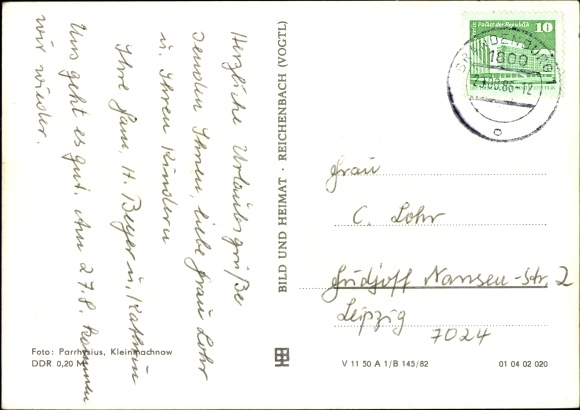 Herzliche Urlaubsgrüße
senden Ihnen, liebe Frau Lohr
u. Ihren Kindern
Ihre Fam. H. Beyer u. Kathrin
Uns geht es gut. Am 27.8. kommen
wir wieder.
Foto: Parrhysius, Kleinmachnow
DDR 0,20 M
BILD UND HEIMAT · REICHENBACH (VOGTL)
Palast der Republik
10
BRANDENBURG
1800
.08.86-12
Frau
C. Lohr
Fridjoff Nansen-Str. 2
Leipzig
7024
V 11 50 A 1/B 145/82
01 04 02 020